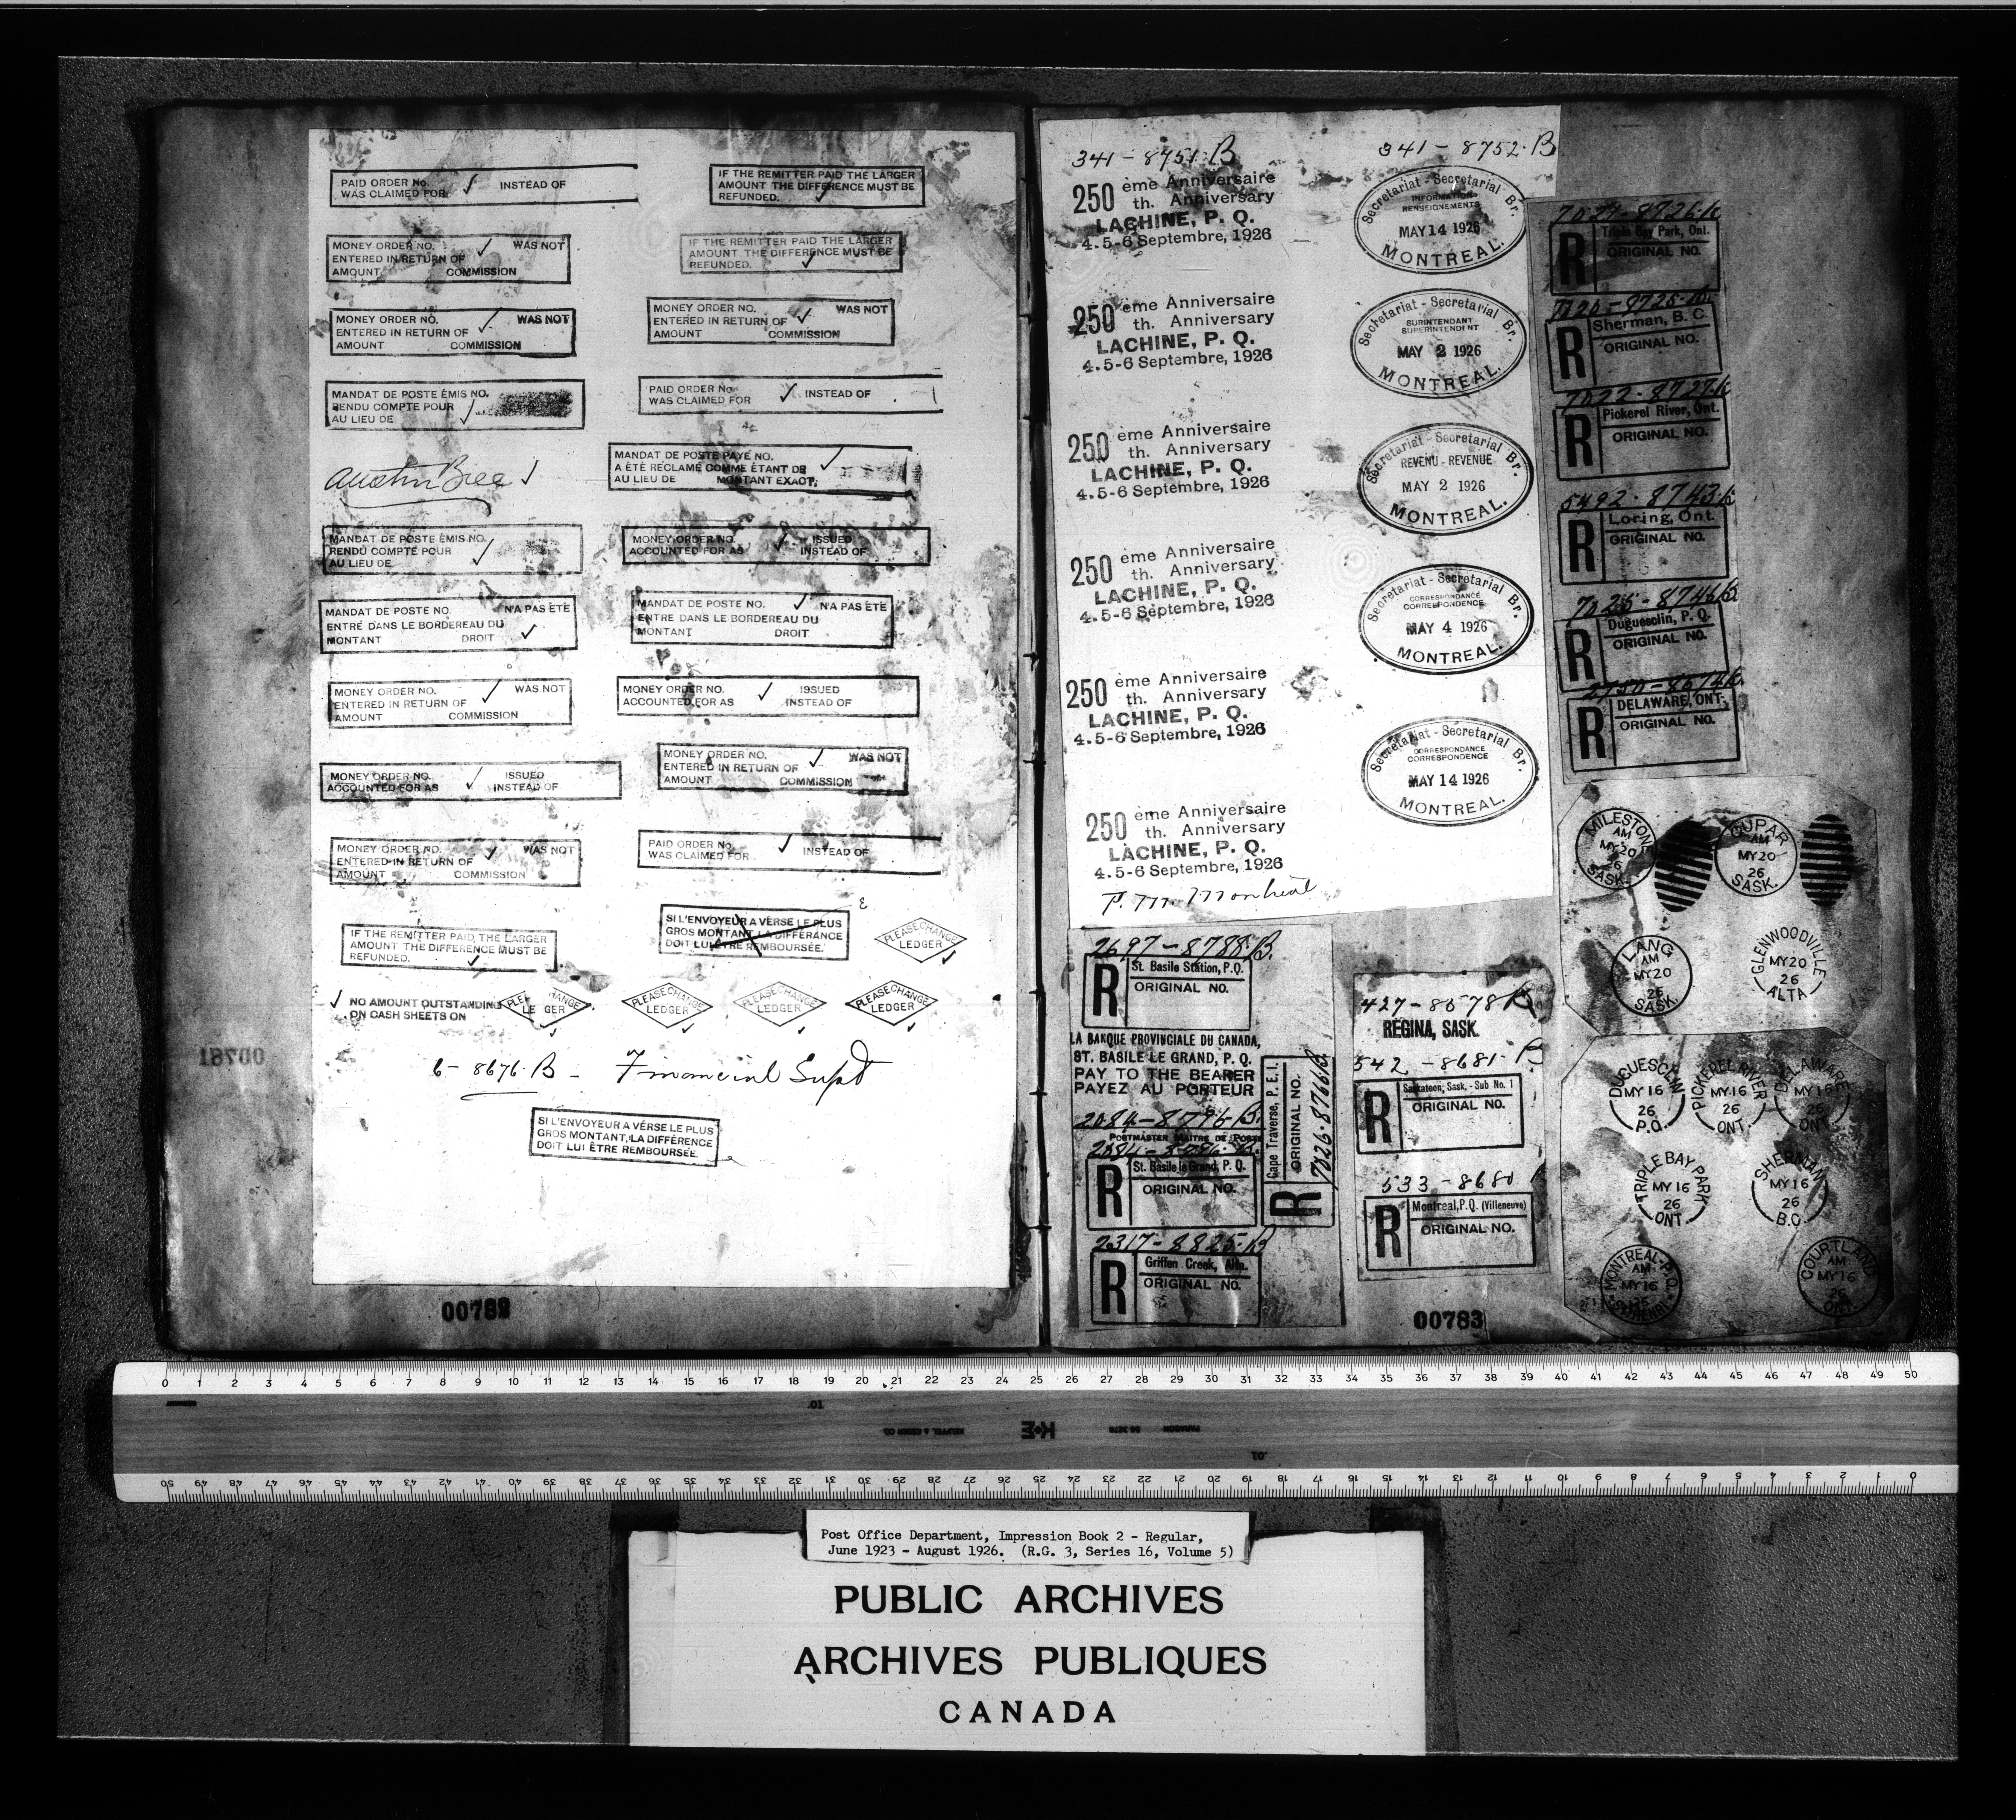 PAID ORDER No. ✓ INSTEAD OF
WAS CLAIMED FOR
IF THE REMITTER PAID THE LARGER
AMOUNT THE DIFFERENCE MUST BE
REFUNDED. ✓
MONEY ORDER NO. ✓ WAS NOT
ENTERED IN RETURN OF
AMOUNT COMMISSION
IF THE REMITTER PAID THE LARGER
AMOUNT THE DIFFERENCE MUST BE
REFUNDED. ✓
MONEY ORDER NO. ✓ WAS NOT
ENTERED IN RETURN OF
AMOUNT COMMISSION
MONEY ORDER NO. ✓ WAS NOT
ENTERED IN RETURN OF
AMOUNT COMMISSION
MANDAT DE POSTE ÉMIS NO.
RENDU COMPTE POUR ✓
AU LIEU DE
PAID ORDER No. ✓ INSTEAD OF
WAS CLAIMED FOR
MANDAT DE POSTE PAYÉ NO. ✓
A ÉTÉ RÉCLAMÉ COMME ÉTANT DE
AU LIEU DE MONTANT EXACT.
Austin
MANDAT DE POSTE ÉMIS NO.
RENDU COMPTE POUR ✓
AU LIEU DE
MONEY ORDER NO. ✓ ISSUED
ACCOUNTED FOR AS INSTEAD OF
MANDAT DE POSTE NO. N'A PAS ÉTÉ
ENTRÉ DANS LE BORDEREAU DU
MONTANT DROIT ✓
MANDAT DE POSTE NO. ✓ N'A PAS ÉTÉ
ENTRÉ DANS LE BORDEREAU DU
MONTANT DROIT
MONEY ORDER NO. ✓ WAS NOT
ENTERED IN RETURN OF
AMOUNT COMMISSION
MONEY ORDER NO. ✓ ISSUED
ACCOUNTED FOR AS INSTEAD OF
MONEY ORDER NO. ✓ ISSUED
ACCOUNTED FOR AS INSTEAD OF
MONEY ORDER NO. ✓ WAS NOT
ENTERED IN RETURN OF
AMOUNT COMMISSION
MONEY ORDER NO. ✓ WAS NOT
ENTERED IN RETURN OF
AMOUNT COMMISSION
PAID ORDER No. ✓ INSTEAD OF
WAS CLAIMED FOR
IF THE REMITTER PAID THE LARGER
AMOUNT THE DIFFERENCE MUST BE
REFUNDED. ✓
SI L'ENVOYEUR A VERSE LE PLUS
GROS MONTANT LA DIFFÉRANCE
DOIT LUI ÊTRE REMBOURSÉE.
PLEASE CHANGE
LEDGER
✓ NO AMOUNT OUTSTANDING
ON CASH SHEETS ON
PLE CHANGE
LE GER
PLEASE CHANGE
LEDGER
PLEASE CHANGE
LEDGER
PLEASE CHANGE
LEDGER
6 - 8676. B - Financial Supt
SI L'ENVOYEUR A VÉRSE LE PLUS
GROS MONTANT, LA DIFFÉRENCE
DOIT LUI ÊTRE REMBOURSÉE.
00782
341 - 8751. B
250 ème Anniversaire
th. Anniversary
LACHINE, P. Q.
4.5-6 Septembre, 1926
250 ème Anniversaire
th. Anniversary
LACHINE, P. Q.
4.5-6 Septembre, 1926
250 ème Anniversaire
th. Anniversary
LACHINE, P. Q.
4.5-6 Septembre, 1926
250 ème Anniversaire
th. Anniversary
LACHINE, P. Q.
4.5-6 Septembre, 1926
250 ème Anniversaire
th. Anniversary
LACHINE, P. Q.
4.5-6 Septembre, 1926
250 ème Anniversaire
th. Anniversary
LACHINE, P. Q.
4.5-6 Septembre, 1926
P. M. Montreal
341 - 8752. B
Secretariat - Secretarial Br.
INFORMATION
RENSEIGNEMENTS
MAY 14 1926
MONTREAL.
Secretariat - Secretarial Br.
SURINTENDANT
SUPERINTENDENT
MAY 2 1926
MONTREAL.
Secretariat - Secretarial Br.
REVENU - REVENUE
MAY 2 1926
MONTREAL.
Secretariat - Secretarial Br.
CORRESPONDANCE
CORRESPONDENCE
MAY 4 1926
MONTREAL.
Secretariat - Secretarial Br.
CORRESPONDANCE
CORRESPONDENCE
MAY 14 1926
MONTREAL.
7027-8726.B
R Triple Bay Park, Ont.
ORIGINAL NO.
R Sherman, B. C.
ORIGINAL NO.
7022-8727.B
R Pickerel River, Ont.
ORIGINAL NO.
5492-8743.B
R Loring, Ont.
ORIGINAL NO.
7025-8746.B
R Duguesclin, P. Q.
ORIGINAL NO.
R DELAWARE, ONT.
ORIGINAL NO.
MILESTONE
AM
MY 20
26
SASK.
CUPAR
AM
MY 20
26
SASK.
LANG
AM
MY 20
26
SASK.
GLENWOODVILLE
MY 20
26
ALTA.
DUGUESCLIN
MY 16
26
P.Q.
PICKEREL RIVER
MY 16
26
ONT.
DELAWARE
MY 16
26
ONT.
TRIPLE BAY PARK
MY 16
26
ONT.
SHERMAN
MY 16
26
B.C.
MONTREAL-P.Q.
AM
MY 16
26
COURTLAND
AM
MY 16
26
ONT.
2697-8788.B.
R St. Basile Station, P.Q.
ORIGINAL NO.
LA BANQUE PROVINCIALE DU CANADA,
ST. BASILE LE GRAND, P. Q.
PAY TO THE BEARER
PAYEZ AU PORTEUR
2084-8796 B.
POSTMASTER MAITRE DE POSTE
2084-8796.B.
R St. Basile le Grand, P. Q.
ORIGINAL NO.
2317-8825.B
R Griffen Creek, Alta.
ORIGINAL NO.
R Cape Traverse, P. E. I.
ORIGINAL NO.
7026.8766.B.
427-8578 B.
REGINA, SASK.
542-8681. B.
R Saskatoon, Sask. - Sub No. 1
ORIGINAL NO.
533-8680
R Montreal, P.Q. (Villeneuve)
ORIGINAL NO.
00783
0 1 2 3 4 5 6 7 8 9 10 11 12 13 14 15 16 17 18 19 20 21 22 23 24 25 26 27 28 29 30 31 32 33 34 35 36 37 38 39 40 41 42 43 44 45 46 47 48 49 50
KEUFFEL & ESSER CO. K+E PARAGON
50 49 48 47 46 45 44 43 42 41 40 39 38 37 36 35 34 33 32 31 30 29 28 27 26 25 24 23 22 21 20 19 18 17 16 15 14 13 12 11 10 9 8 7 6 5 4 3 2 1 0
Post Office Department, Impression Book 2 - Regular,
June 1923 - August 1926. (R.G. 3, Series 16, Volume 5)
PUBLIC ARCHIVES
ARCHIVES PUBLIQUES
CANADA